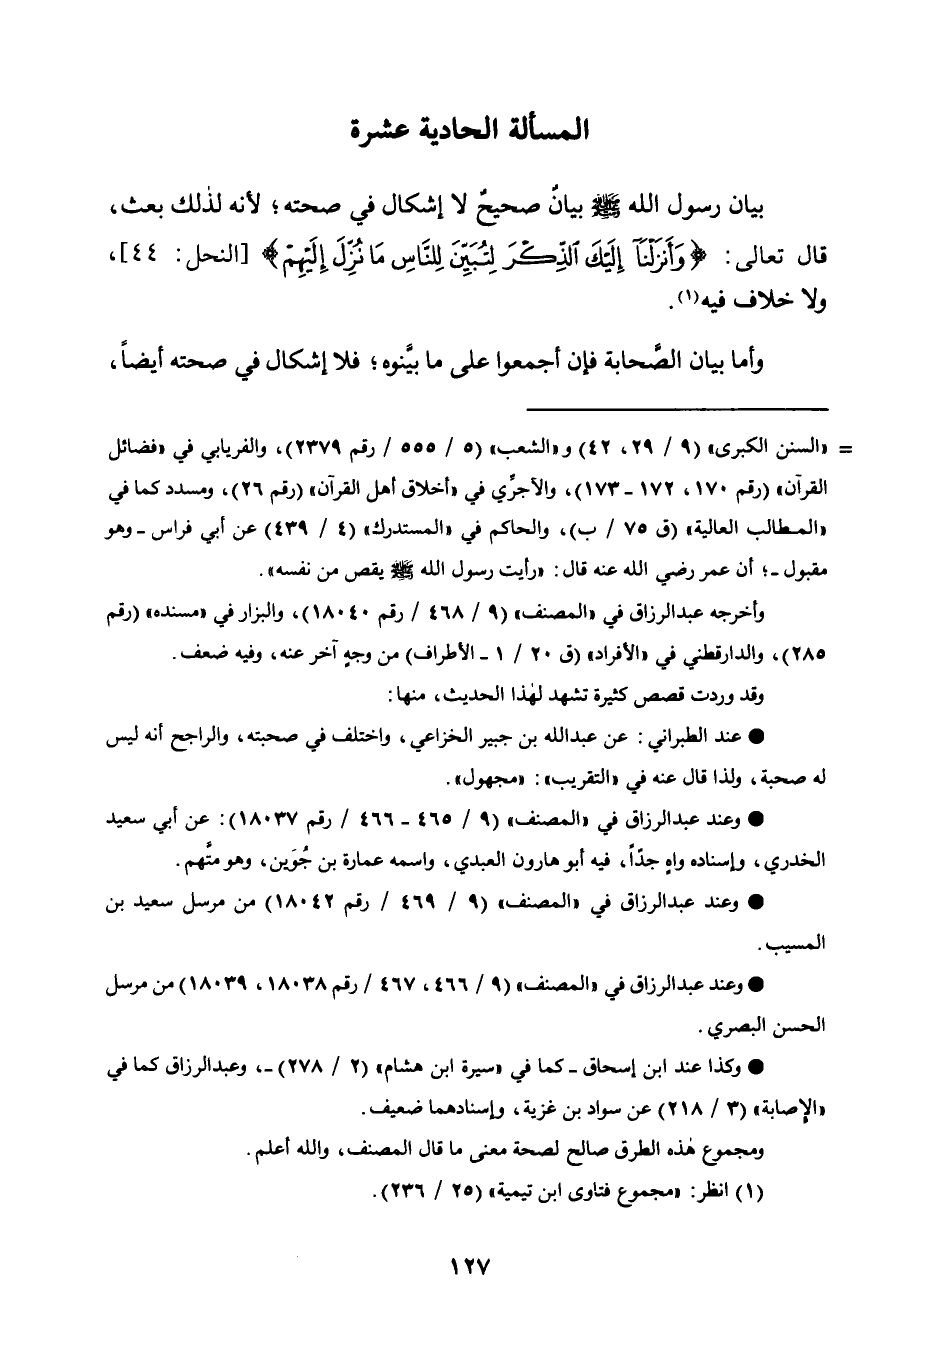 المسألة الحادية عشرة
بيان رسول الله ﷺ بيانٌ صحيحٌ لا إشكال في صحته؛ لأنه لذٰلك بعث،
قال تعالى: ﴿وَأَنزَلْنَآ إِلَيْكَ ٱلذِّكْرَ لِتُبَيِّنَ لِلنَّاسِ مَا نُزِّلَ إِلَيْهِمْ﴾ [النحل: ٤٤]،
ولا خلاف فيه(١).
وأما بيان الصَّحابة فإن أجمعوا على ما بيَّنوه؛ فلا إشكال في صحته أيضاً،
= «السنن الكبرى» (٩ / ٢٩، ٤٢) و«الشعب» (٥ / ٥٥٥ / رقم ٢٣٧٩)، والفريابي في «فضائل
القرآن» (رقم ١٧٠، ١٧٢ ـ ١٧٣)، والآجرِّي في «أخلاق أهل القرآن» (رقم ٢٦)، ومسدد كما في
«المطالب العالية» (ق ٧٥ / ب)، والحاكم في «المستدرك» (٤ / ٤٣٩) عن أبي فراس ـ وهو
مقبول ـ؛ أن عمر رضي الله عنه قال: «رأيت رسول الله ﷺ يقص من نفسه».
وأخرجه عبدالرزاق في «المصنف» (٩ / ٤٦٨ / رقم ١٨٠٤٠)، والبزار في «مسنده» (رقم
٢٨٥)، والدارقطني في «الأفراد» (ق ٢٠ / ١ ـ الأطراف) من وجهٍ آخر عنه، وفيه ضعف.
وقد وردت قصص كثيرة تشهد لهٰذا الحديث، منها:
● عند الطبراني: عن عبدالله بن جبير الخزاعي، واختلف في صحبته، والراجح أنه ليس
له صحبة، ولذا قال عنه في «التقريب»: «مجهول».
● وعند عبدالرزاق في «المصنف» (٩ / ٤٦٥ ـ ٤٦٦ / رقم ١٨٠٣٧): عن أبي سعيد
الخدري، وإسناده واهٍ جدّاً، فيه أبو هارون العبدي، واسمه عمارة بن جُوَين، وهو متَّهم.
● وعند عبدالرزاق في «المصنف» (٩ / ٤٦٩ / رقم ١٨٠٤٢) من مرسل سعيد بن
المسيب.
● وعند عبدالرزاق في «المصنف» (٩ / ٤٦٦، ٤٦٧ / رقم ١٨٠٣٨، ١٨٠٣٩) من مرسل
الحسن البصري.
● وكذا عند ابن إسحاق ـ كما في «سيرة ابن هشام» (٢ / ٢٧٨) ـ، وعبدالرزاق كما في
«الإصابة» (٣ / ٢١٨) عن سواد بن غزية، وإسنادهما ضعيف.
ومجموع هٰذه الطرق صالح لصحة معنى ما قال المصنف، والله أعلم.
(١) انظر: «مجموع فتاوى ابن تيمية» (٢٥ / ٢٣٦).
١٢٧